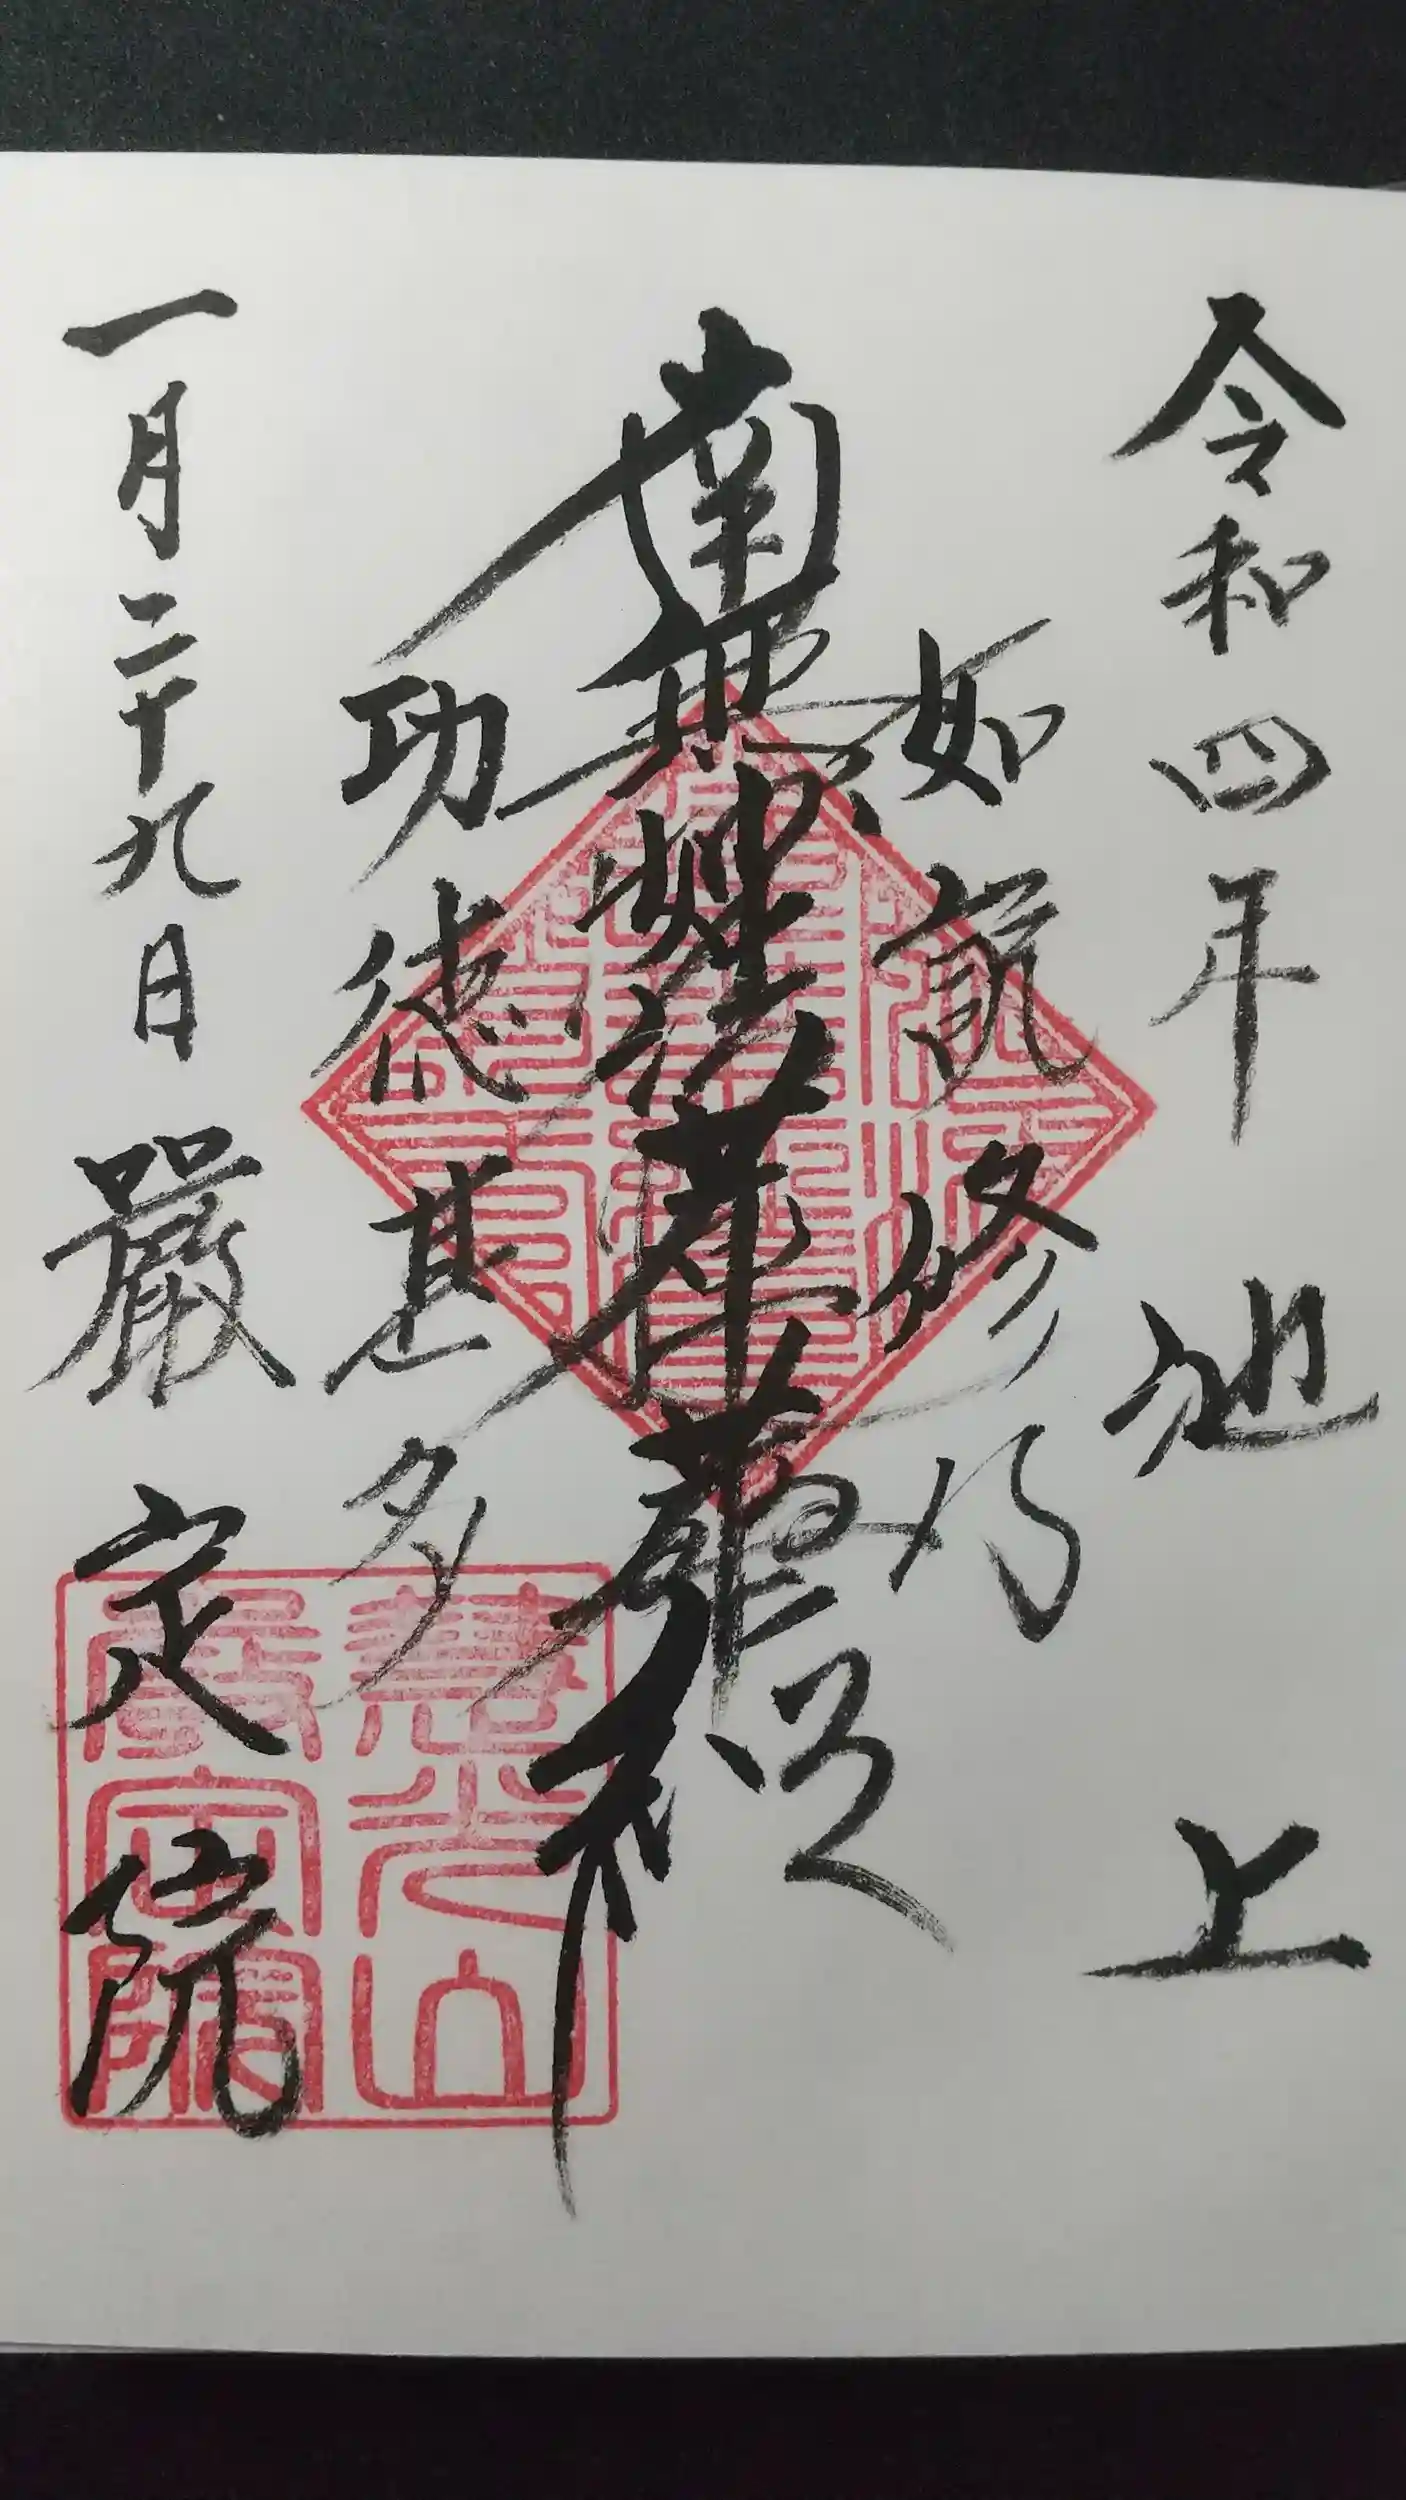 令和四年 池上
如説修行
南無妙法蓮華経
功徳甚多
一月二十九日 嚴定院
慧光山
嚴定院